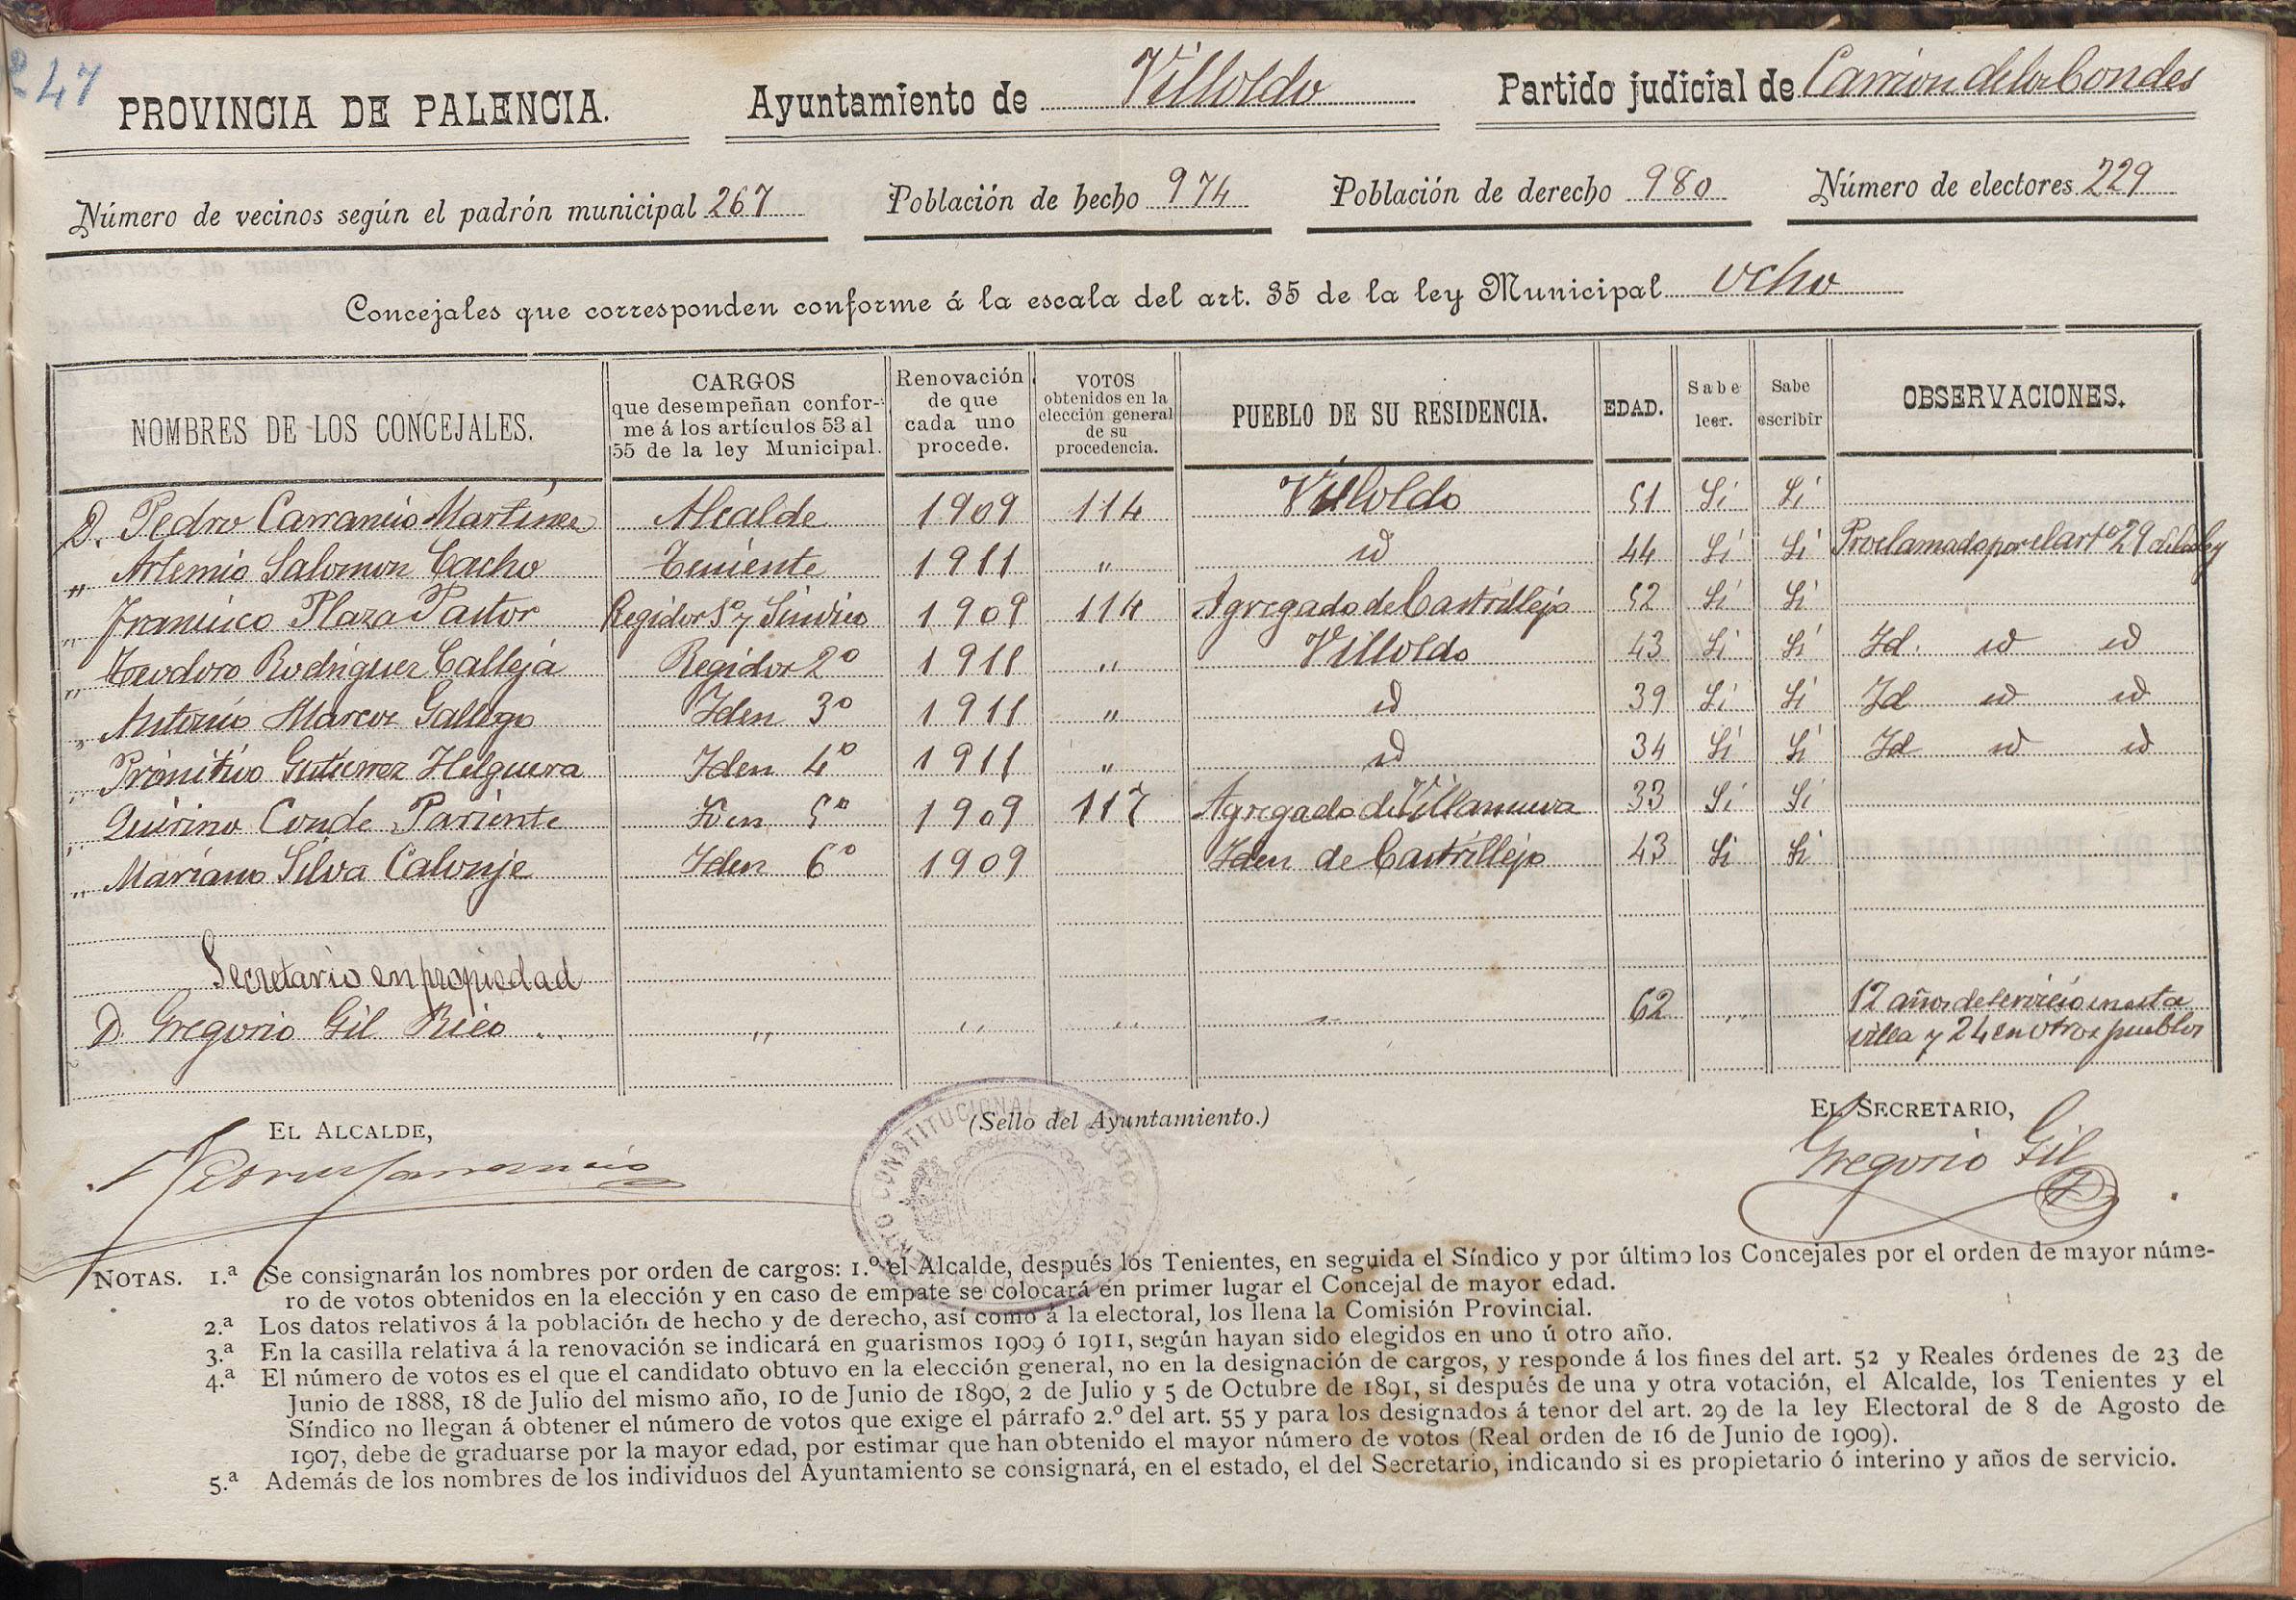 247
PROVINCIA DE PALENCIA. Ayuntamiento de Villoldo Partido judicial de Carrion de los Condes
Número de vecinos según el padrón municipal 267 Población de hecho 974 Población de derecho 980 Número de electores 229
Concejales que corresponden conforme á la escala del art. 35 de la ley Municipal ocho
NOMBRES DE LOS CONCEJALES. CARGOS que desempeñan confor-me á los artículos 53 al 55 de la ley Municipal. Renovación de que cada uno procede. VOTOS obtenidos en la elección general de su procedencia. PUEBLO DE SU RESIDENCIA. EDAD. Sabe leer. Sabe escribir OBSERVACIONES.
D. Pedro Carrancio Martinez Alcalde 1909 114 Villoldo 51 Si Si
„ Artemio Salomon Cacho Teniente 1911 „ id 44 Si Si Proclamado por el arto 29 de la ley
„ Francisco Plaza Pastor Regidor 1º y Sindico 1909 114 Agregado de Castrillejo 52 Si Si
„ Teodoro Rodriguez Calleja Regidor 2º 1911 „ Villoldo 43 Si Si Id. id id
„ Antonio Marcos Gallego Iden 3º 1911 „ id 39 Si Si Id id id
„ Primitivo Gutierrez Helguera Iden 4º 1911 „ id 34 Si Si Id id id
„ Quirino Conde Pariente Iden 5º 1909 117 Agregado de Villanueva 33 Si Si
„ Mariano Silva Calonje Iden 6º 1909 Iden de Castrillejo 43 Si Si
Secretario en propiedad
D. Gregorio Gil Rico „ „ „ „ 62 „ 12 años de servicio en esta
villa y 24 en otros pueblos
EL ALCALDE, (Sello del Ayuntamiento.) EL SECRETARIO,
Pedro Carrancio Gregorio Gil
CONSTITUCIONAL
NOTAS. 1.ª Se consignarán los nombres por orden de cargos: 1.º el Alcalde, después los Tenientes, en seguida el Síndico y por último los Concejales por el orden de mayor núme-
ro de votos obtenidos en la elección y en caso de empate se colocará en primer lugar el Concejal de mayor edad.
2.ª Los datos relativos á la población de hecho y de derecho, así como á la electoral, los llena la Comisión Provincial.
3.ª En la casilla relativa á la renovación se indicará en guarismos 1909 ó 1911, según hayan sido elegidos en uno ú otro año.
4.ª El número de votos es el que el candidato obtuvo en la elección general, no en la designación de cargos, y responde á los fines del art. 52 y Reales órdenes de 23 de
Junio de 1888, 18 de Julio del mismo año, 10 de Junio de 1890, 2 de Julio y 5 de Octubre de 1891, si después de una y otra votación, el Alcalde, los Tenientes y el
Síndico no llegan á obtener el número de votos que exige el párrafo 2.º del art. 55 y para los designados á tenor del art. 29 de la ley Electoral de 8 de Agosto de
1907, debe de graduarse por la mayor edad, por estimar que han obtenido el mayor número de votos (Real orden de 16 de Junio de 1909).
5.ª Además de los nombres de los individuos del Ayuntamiento se consignará, en el estado, el del Secretario, indicando si es propietario ó interino y años de servicio.